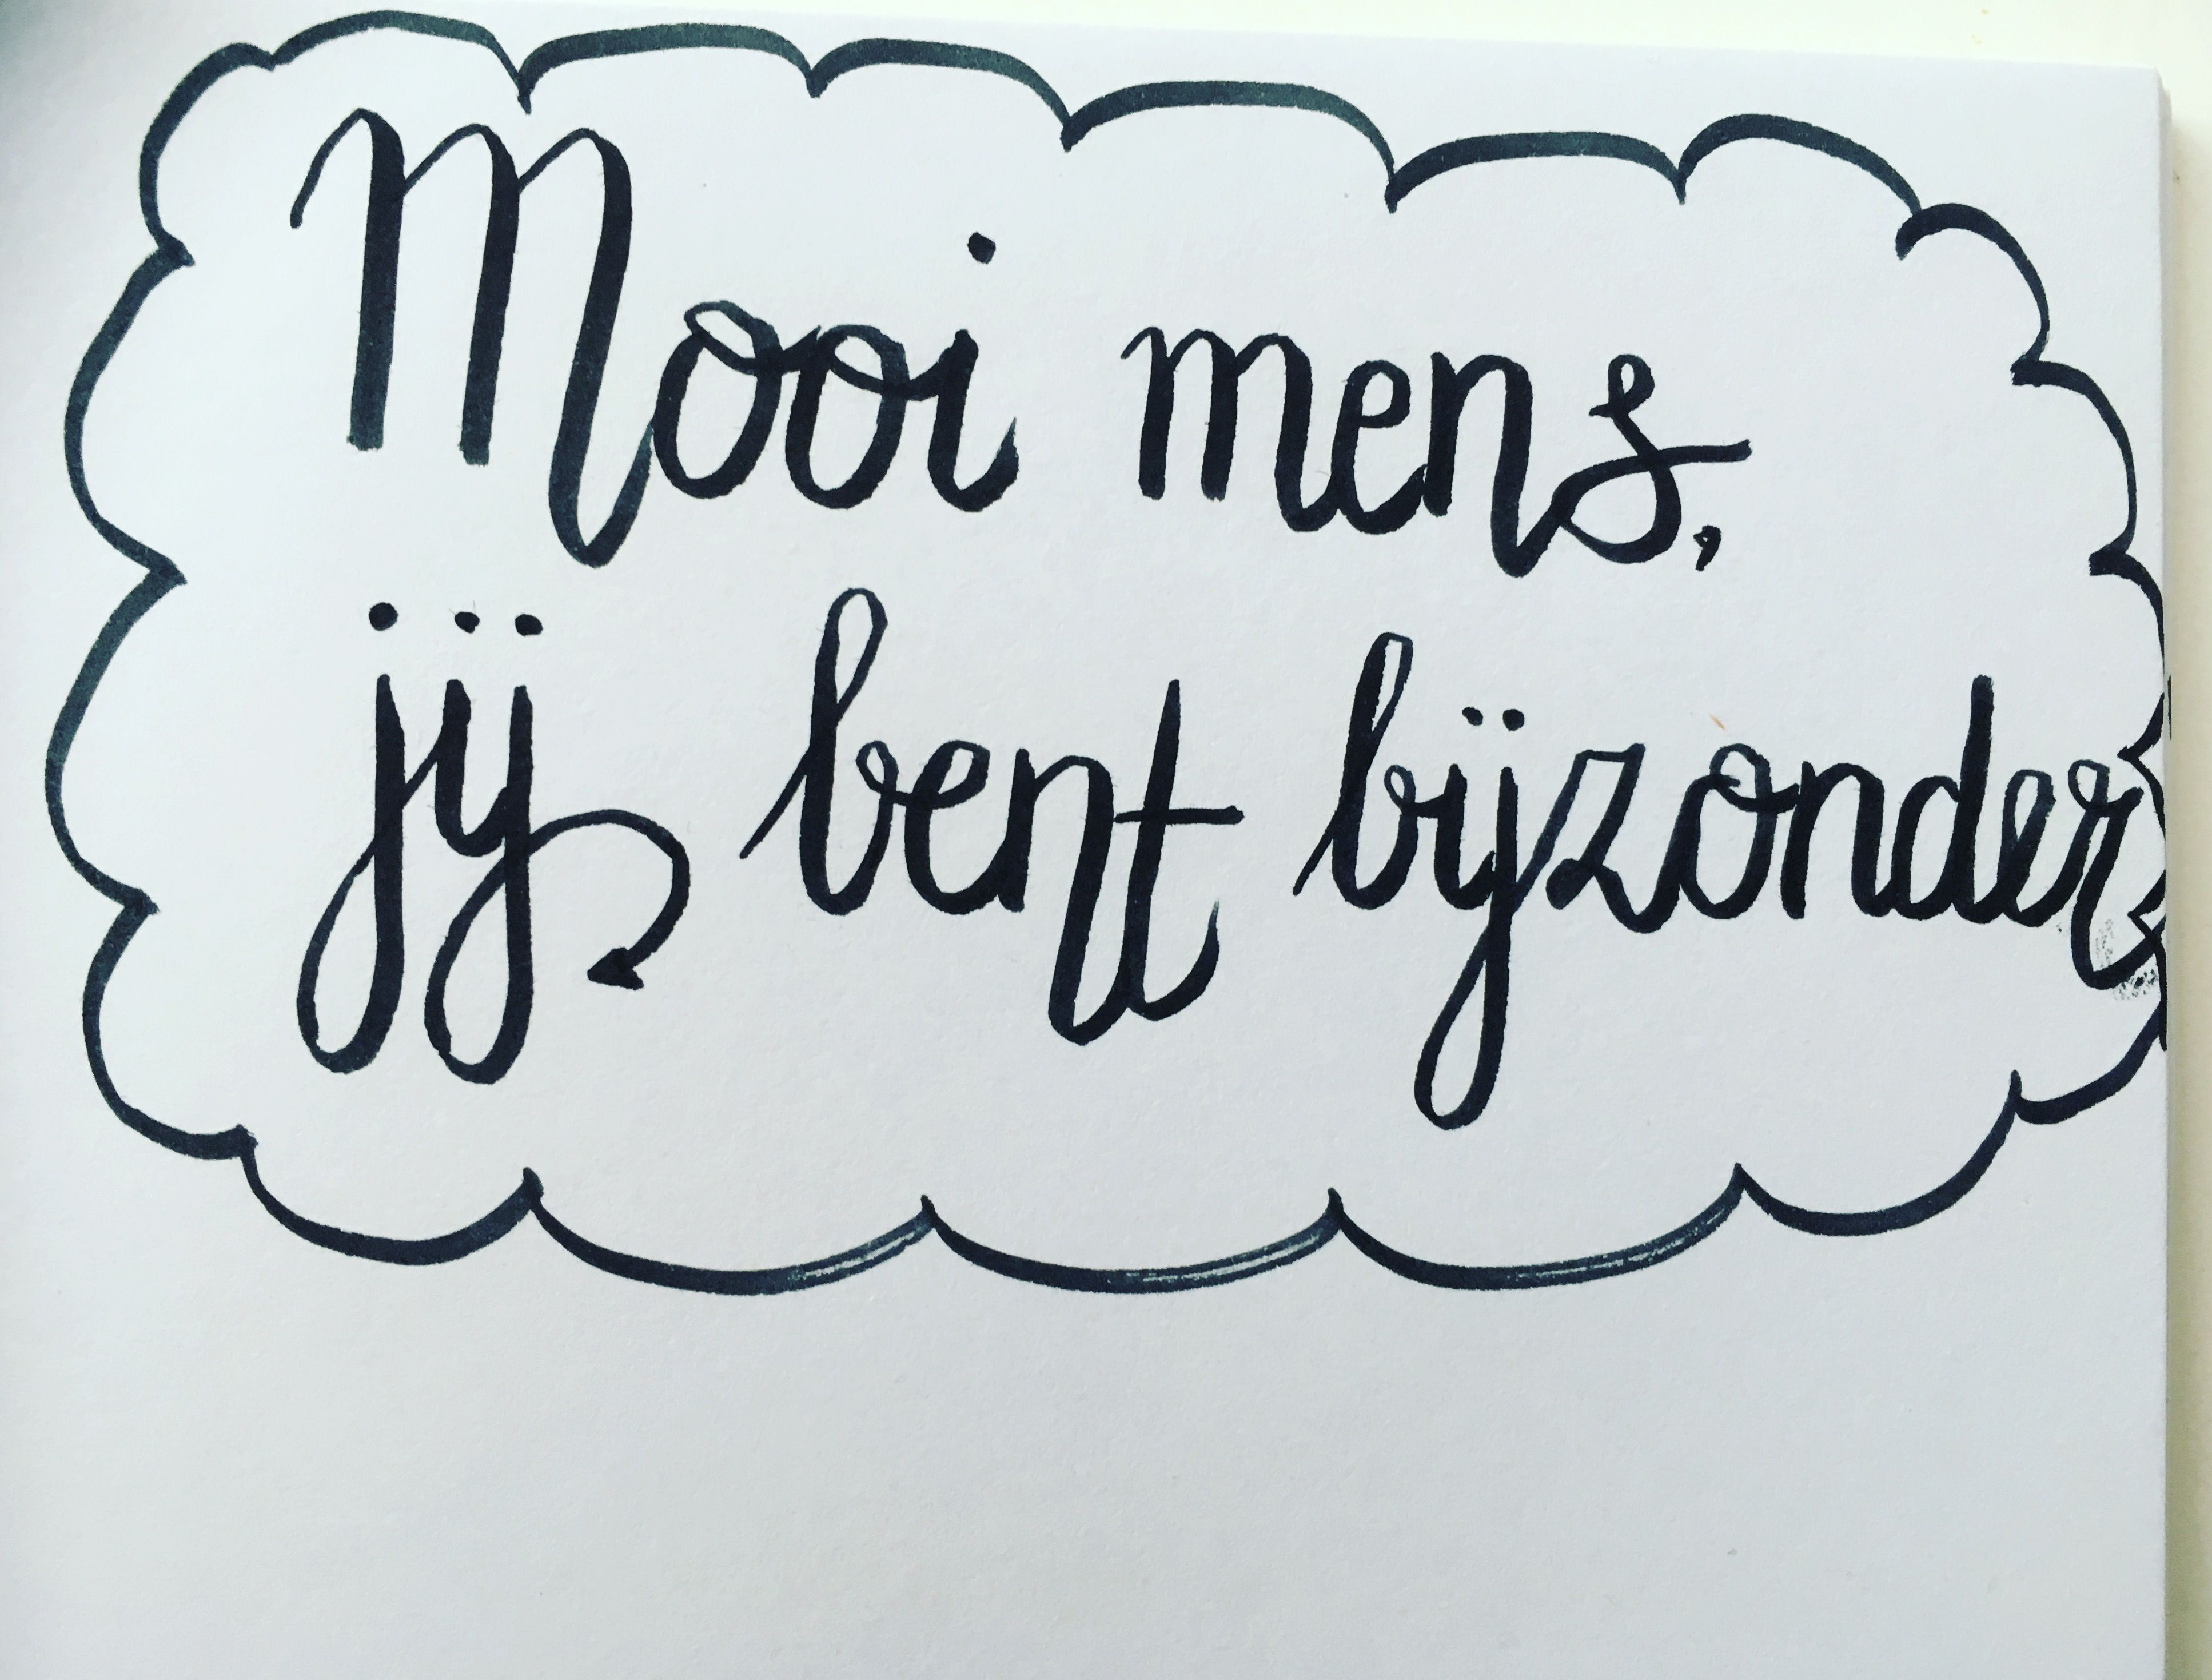 Mooi mens,
jij bent bijzonder